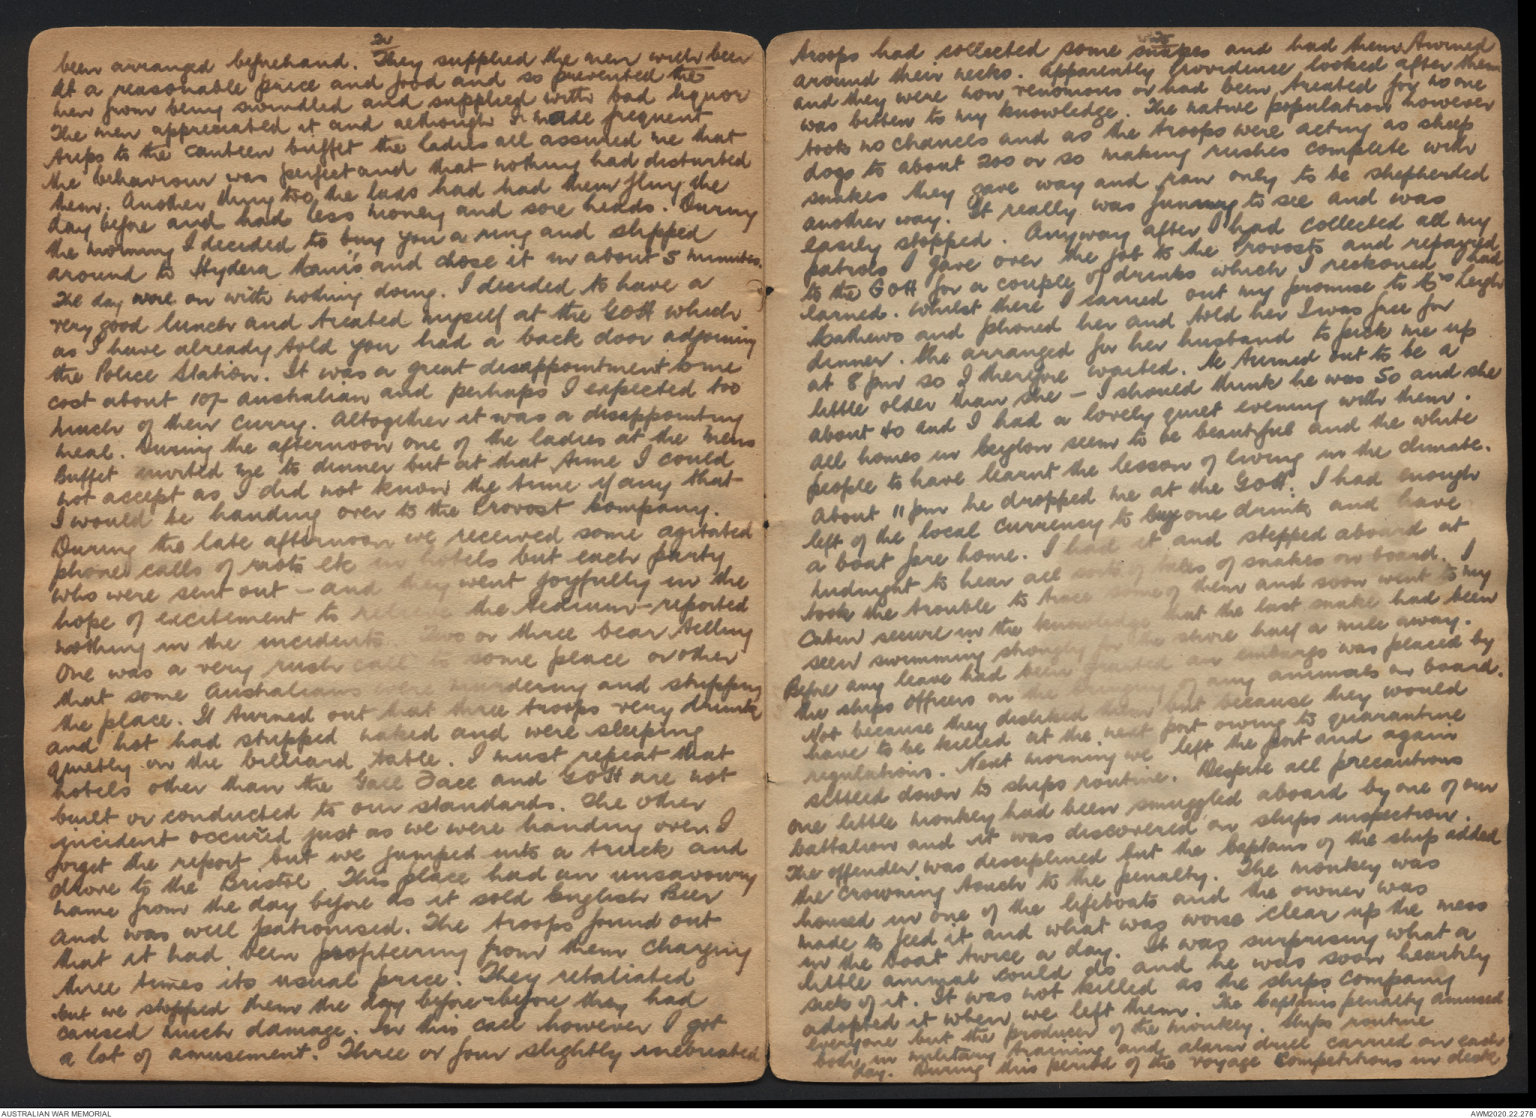 24
been arranged beforehand. They supplied the men with beer
at a reasonable price and food and so prevented the
men from being swindled and supplied with bad liquor
The men appreciated it and although I made frequent
trips to the canteen buffet the ladies all assured me that
the behaviour was perfect and that nothing had disturbed
them. Another thing too, the lads had had their fling the
day before and had less money and sore heads. During
the morning I decided to buy you a ring and slipped
around to Hydera Kani's and chose it in about 5 minutes.
The day wore on with nothing doing. I decided to have a
very good lunch and treated myself at the GOH which
as I have already told you had a back door adjoining
the Police Station. It was a great disappointment to me
cost about 10/- Australian and perhaps I expected too
much of their curry. Altogether it was a disappointing
meal. During the afternoon one of the ladies at the mens
Buffet invited me to dinner but at that time I could
not accept as I did not know the time if any that
I would be handing over to the Provost Company.
During the late afternoon we received some agitated
phone calls of riots etc in hotels but each party
who were sent out – and they went joyfully in the
hope of excitement to relieve the tedium – reported
nothing in the incidents. Two or three bear telling
One was a very rush call to some place or other
that some Australians were murdering and stripping
the place. It turned out that three troops very drunk
and hot had stripped naked and were sleeping
quietly on the billiard table. I must repeat that
hotels other than the Galle Face and GOH are not
built or conducted to our standards. The other
incident occured just as we were handing over. I
forget the report but we jumped into a truck and
drove to the Bristol. This place had an unsavoury
name from the day before as it sold English Beer
and was well patronised. The troops found out
that it had been profiteering from them charging
three times its usual price. They retaliated
but we stopped them the day before before they had
caused much damage. In this call however I got
a lot of amusement. Three or four slightly inebreated
troops had collected some snakes and had them twined
around their necks. Apparently Providence looked after them
and they were non venomous or had been treated for no one
was bitten to my knowledge. The native population however
took no chances and as the troops were acting as sheep
dogs to about 200 or so making rushes complete with
snakes they gave way and ran only to be shepherded
another way. It really was funny to see and was
easily stopped. Anyway after I had collected all my
patrols I gave over the job to the Provosts and repaired
to the GOH for a couple of drinks which I reckoned I had
earned. Whilst there I carried out my promise to Mrs Leigh
Mathews and phoned her and told her I was free for
dinner. She arranged for her husband to pick me up
at 8 pm so I therefore waited. He turned out to be a
little older than she – I should think he was 50 and she
about 40 and I had a lovely quiet evening with them.
All homes in Ceylon seem to be beautiful and the white
people to have learnt the lesson of living in the climate.
About 11 pm he dropped me at the GOH. I had enough
left of the local currency to buy one drink and have
a boat fare home. I had it and stepped aboard at
midnight to hear all sorts of tales of snakes on board. I
took the trouble to trace some of them and soon went to my
Cabin secure in the knowledge that the last snake had been
seen swimming strongly for the shore half a mile away.
Before any leave had been granted an embargo was placed by
the ships officers on the bringing of any animals on board.
Not because they disliked them but because they would
have to be killed at the next port owing to quarantine
regulations. Next morning we left the port and again
settled down to ships routine. Despite all precautions
one little monkey had been smuggled aboard by one of our
battalion and it was discovered on ships inspection.
The offender was disciplined but the Captains of the ship added
the crowning touch to the penalty. The monkey was
housed in one of the lifeboats and the owner was
made to feed it and what was worse clear up the mess
in the boat twice a day. It was surprising what a
little animal could do and he was soon heartily
sick of it. It was not killed as the ships company
adopted it when we left them. The Captains penalty amused
everyone but the producer of the monkey. Ships routine
body in military training and alarm drill carried on each
day. During this period of the voyage competitions in deck
AUSTRALIAN WAR MEMORIAL
AWM2020.22.278